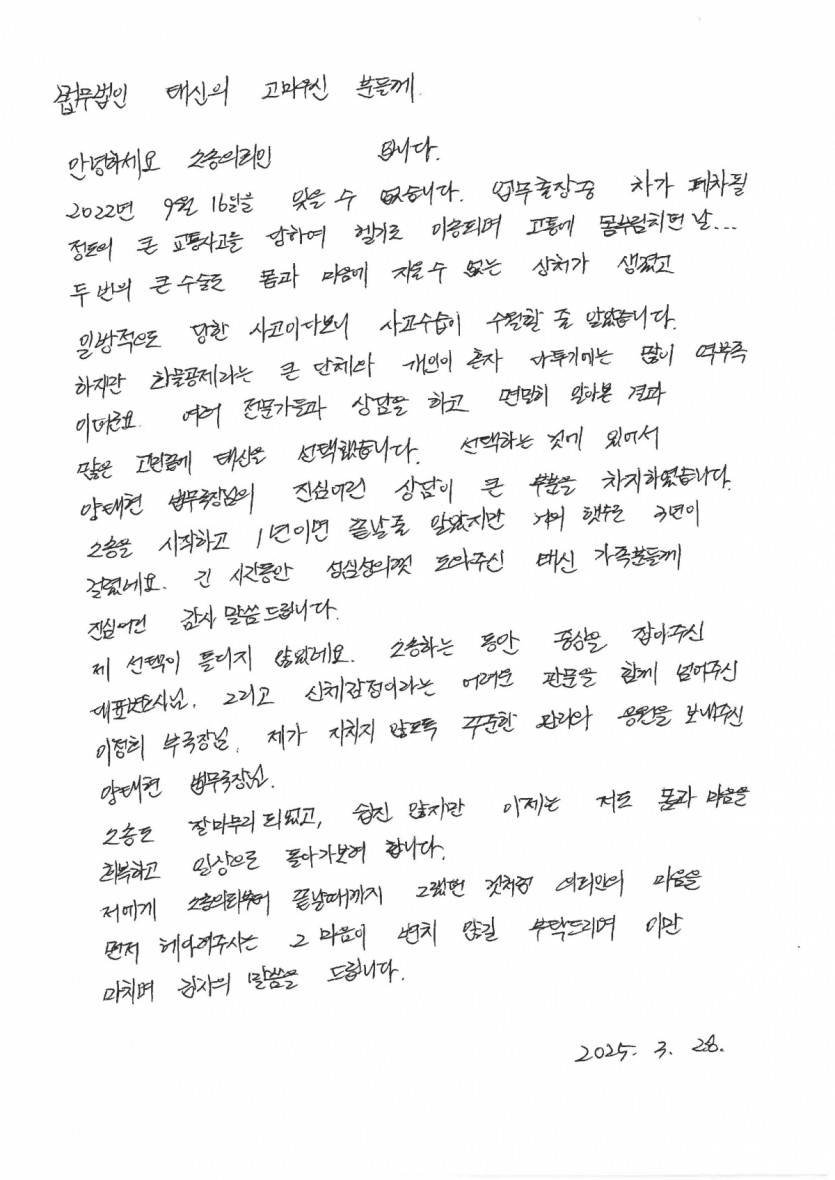 법무법인 태신의 고마우신 분들께.
안녕하세요 소송의뢰인 입니다.
2022년 9월 16일을 잊을 수 없습니다. 업무출장중 차가 폐차될
정도의 큰 교통사고를 당하여 헬기로 이송되며 고통에 몸부림치던 날...
두 번의 큰 수술로 몸과 마음에 지울 수 없는 상처가 생겼고
일방적으로 당한 사고이다보니 사고수습이 수월할 줄 알았습니다.
하지만 화물공제라는 큰 단체와 개인이 혼자 다투기에는 많이 역부족
이더군요. 여러 전문가들과 상담을 하고 면밀히 알아본 결과
많은 고민끝에 태신을 선택했습니다. 선택하는 것에 있어서
양태현 법무국장님의 진심어린 상담이 큰 부분을 차지하였습니다.
소송을 시작하고 1년이면 끝날줄 알았지만 거의 햇수로 3년이
걸렸네요. 긴 시간동안 성심성의껏 도와주신 태신 가족분들께
진심어린 감사 말씀 드립니다.
제 선택이 틀리지 않았네요. 소송하는 동안 중심을 잡아주신
대표변호사님, 그리고 신체감정이라는 어려운 관문을 함께 넘어주신
이정희 부국장님, 제가 지치지 않도록 꾸준한 관리와 응원을 보내주신
양태현 법무국장님.
소송도 잘마무리 되었고, 쉽진 않지만 이제는 저도 몸과 마음을
회복하고 일상으로 돌아가보려 합니다.
저에게 소송의뢰부터 끝날때까지 그랬던 것처럼 의뢰인의 마음을
먼저 헤아려주시는 그 마음이 변치 않길 부탁드리며 이만
마치며 감사의 말씀을 드립니다.
2025. 3. 28.